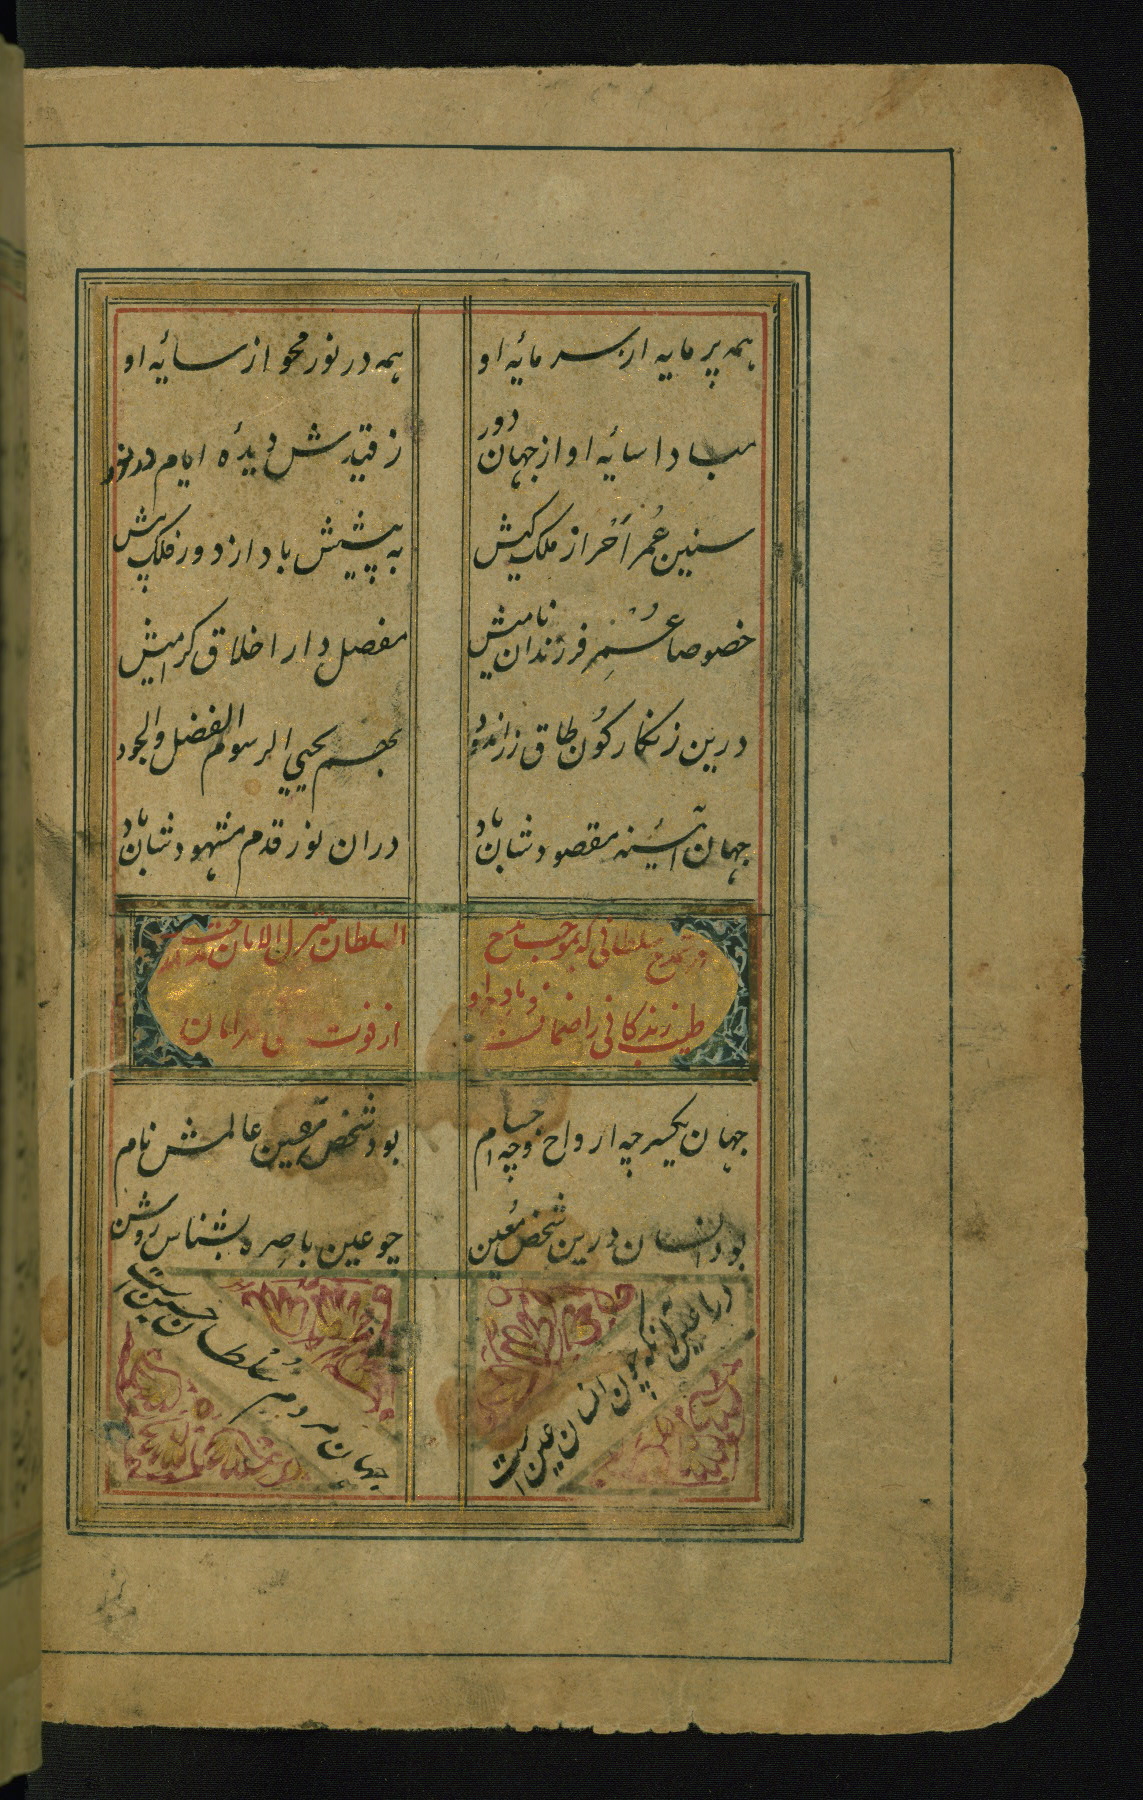 همه پر مایه از سرمایه او
همه در نور محو از سایه او
مبادا سایه او از جهان دور
ز قیدش دیده ایام
سنین عمر احرار ملک کیش
به پیشش باد از دور فلک بیش
خصوصا عمر فرزندان نامیش
مفصل دار اخلاق کرامیش
درین زنگارگون طاق زراندود
بهم یحیی الرسوم الفضل والجود
جهان آئینه مقصودشان باد
در آن نور قدم مشهودشان باد
سلطانی که بموجب
السلطان الامان
طیب زندگانی را ضمانست
از فوت امان
جهان یکسر چه ارواح و چه اجسام
بود شخص معین عالمش نام
بود انسان درین شخص معین
چو عین باصره بشناس روشن
در آن عین آنکه چون انسان عین است
جهان مردم سلطان حسین است